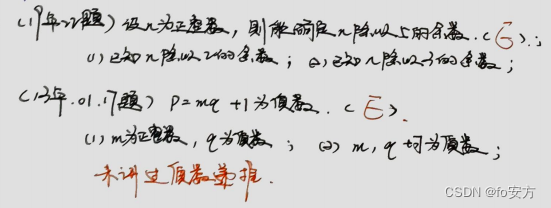 (19年.22题) 设n为正整数,则能确定n除以5的余数.(E).:
(1)已知n除以2的余数; (2)已知n除以3的余数;
(13年.01.17题) P=mq+1为质数. (E).
(1)m为正整数,q为质数; (2) m,q均为质数;
未讲过质数
CSDN @fo安方